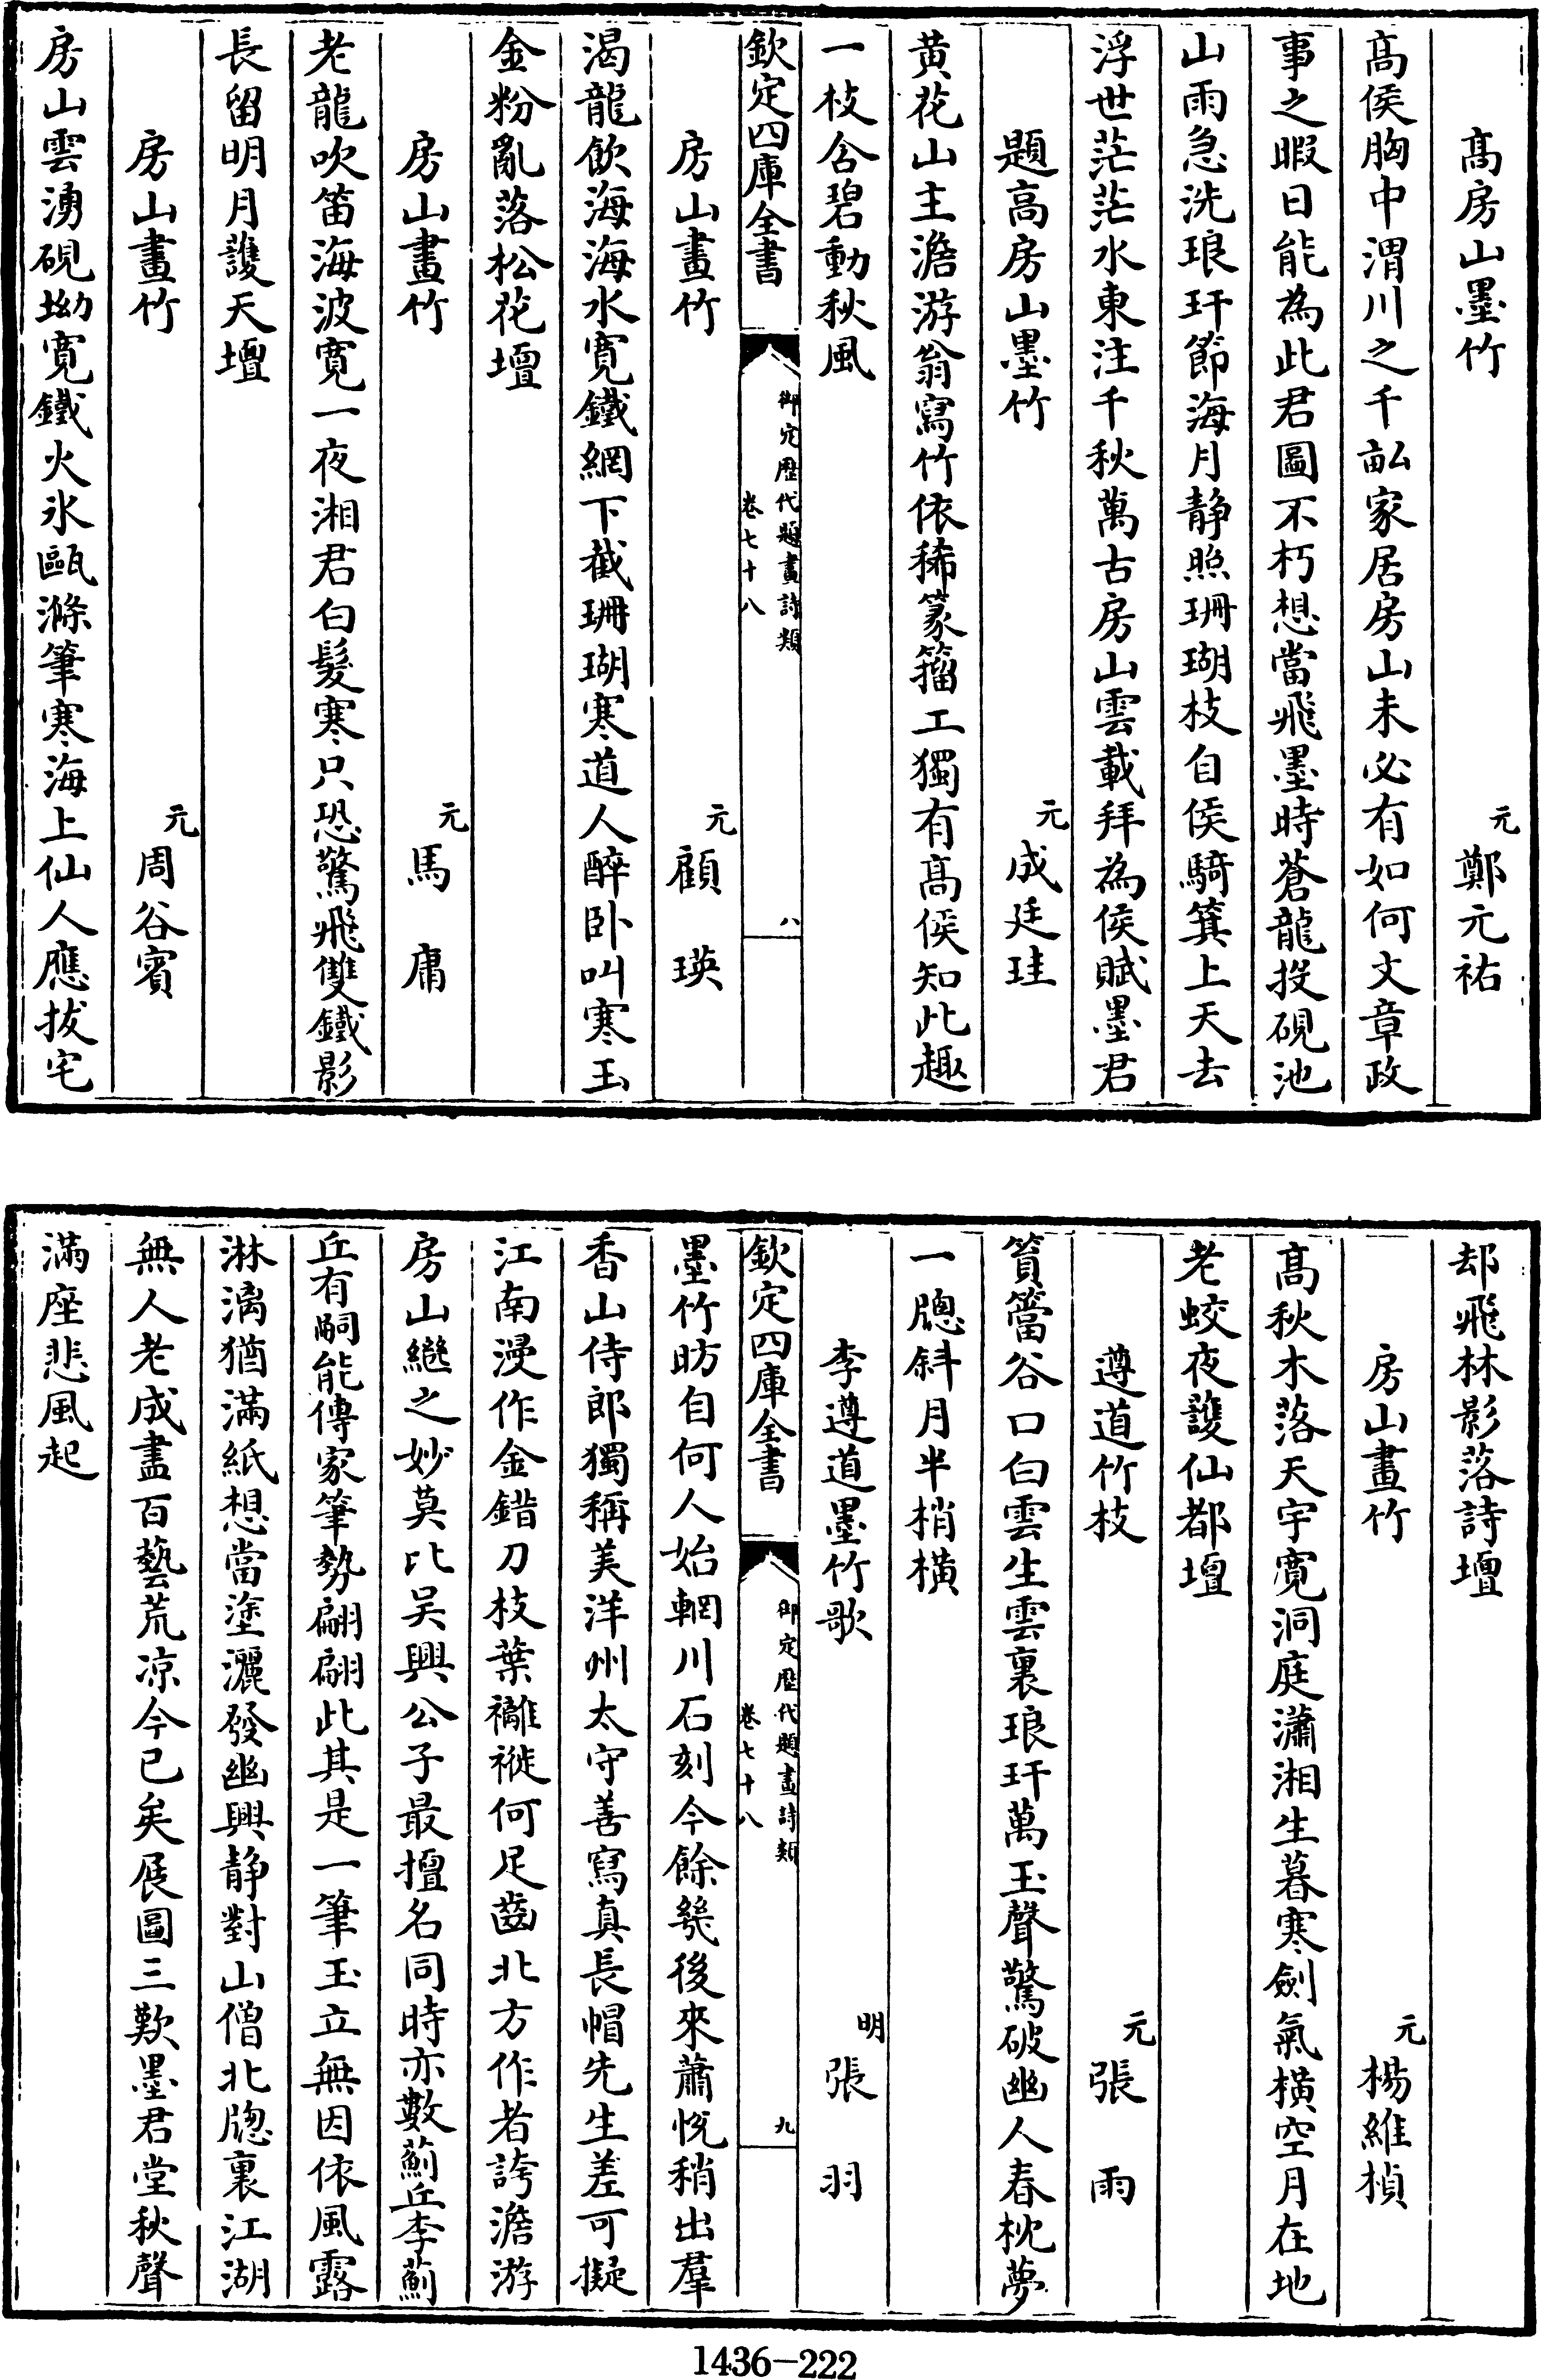 高房山墨竹 元 鄭元祐
高侯胸中渭川之千畝家居房山未必有如何文章政
事之暇日能為此君圖不朽想當飛墨時蒼龍投硯池
山雨急洗琅玕節海月静照珊瑚枝自侯騎箕上天去
浮世茫茫水東注千秋萬古房山雲載拜為侯賦墨君
題高房山墨竹 元 成廷珪
黄花山主澹游翁寫竹依稀篆籀工獨有高侯知此趣
一枝含碧動秋風
欽定四庫全書 御定歷代題畫詩類 卷七十八 八
房山畫竹 元 顧瑛
渴龍飲海海水寬鐵網下截珊瑚寒道人醉卧叫寒玉
金粉亂落松花壇
房山畫竹 元 馬庸
老龍吹笛海波寛一夜湘君白髮寒只恐驚飛雙鐵影
長留明月護天壇
房山畫竹 元 周谷賓
房山雲湧硯坳寛鐵火氷甌滌筆寒海上仙人應拔宅
却飛林影落詩壇
房山畫竹 元 楊維楨
高秋木落天宇寛洞庭瀟湘生暮寒劍氣橫空月在地
老蛟夜護仙都壇
遵道竹枝 元 張雨
篔簹谷口白雲生雲裏琅玕萬玉聲驚破幽人春枕夢
一牕斜月半梢橫
李遵道墨竹歌 明 張羽
欽定四庫全書 御定歷代題畫詩類 卷七十八 九
墨竹昉自何人始輞川石刻今餘幾後來蕭悦稍出羣
香山侍郎獨稱美洋州太守善寫真長帽先生差可擬
江南漫作金錯刀枝葉襳褷何足齒北方作者誇澹游
房山繼之妙莫比吴興公子最擅名同時亦數薊丘李薊
丘有嗣能傳家筆勢翩翩此其是一筆玉立無因依風露
淋漓猶滿紙想當塗灑發幽興静對山僧北牕裏江湖
無人老成盡百藝荒凉今已矣展圖三歎墨君堂秋聲
滿座悲風起
1436-222